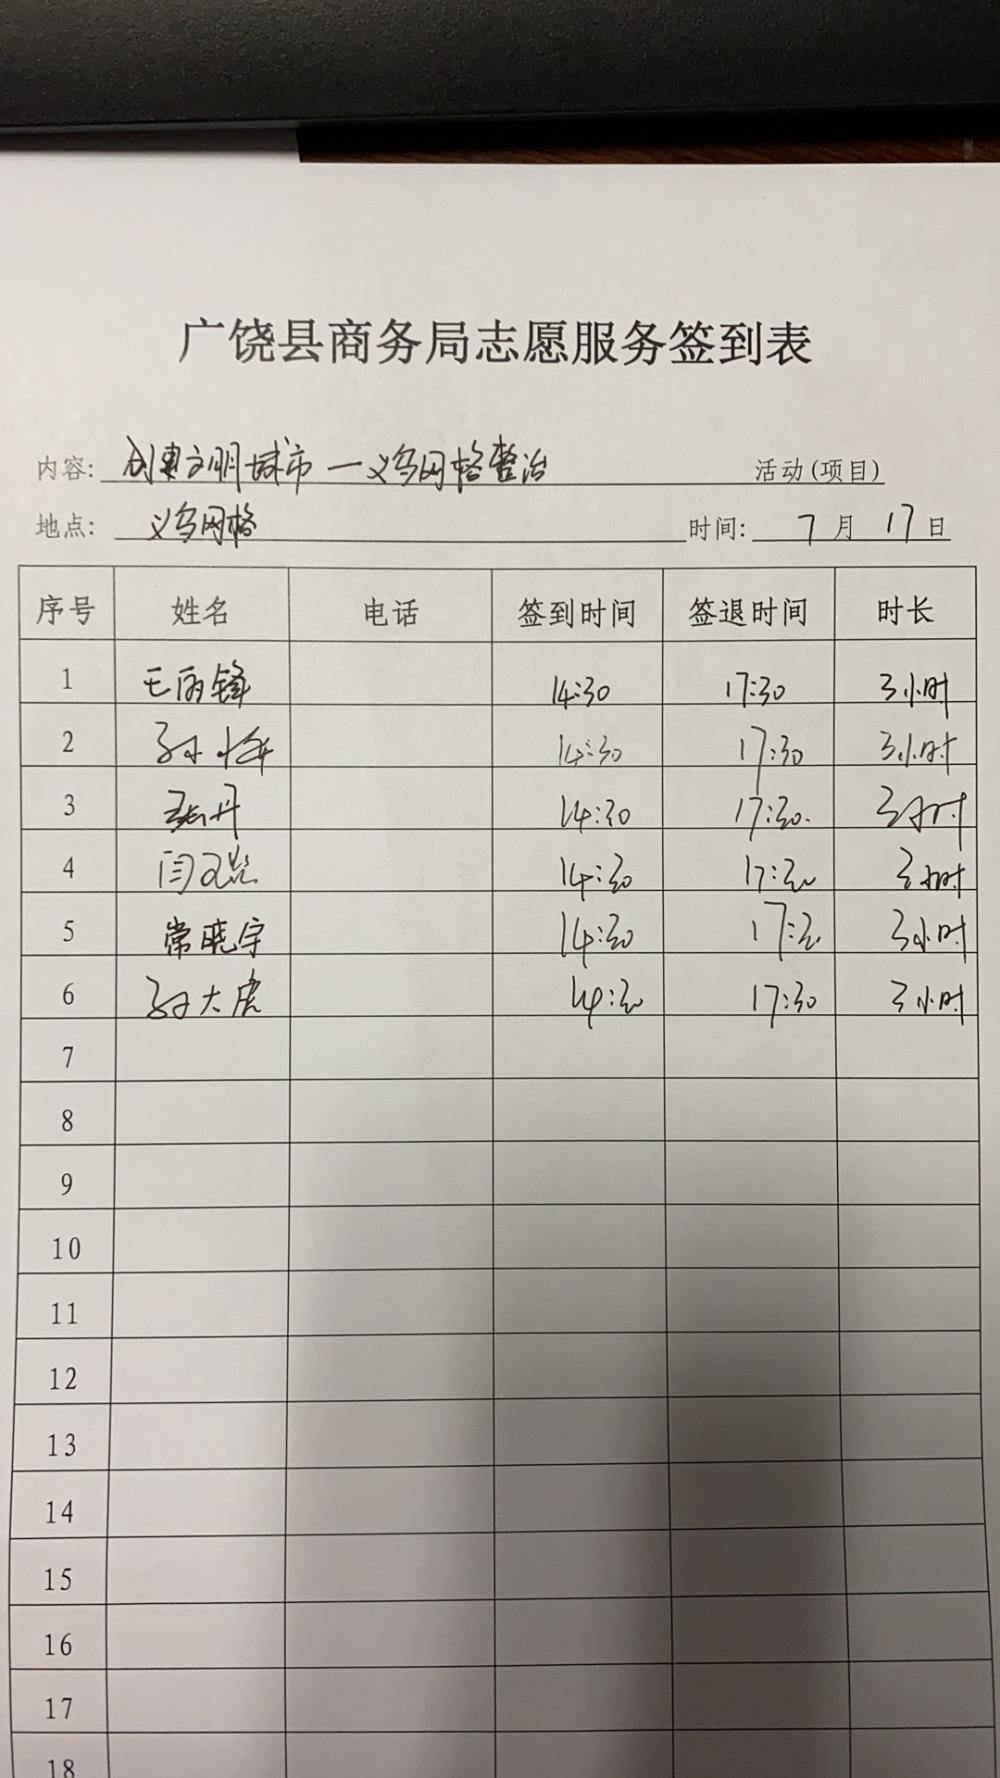 广饶县商务局志愿服务签到表
内容: 创建文明城市一义乌网格整治 活动(项目)
地点: 义乌网格 时间: 7月17日
序号 姓名 电话 签到时间 签退时间 时长
1 王丽锋 14:30 17:30 3小时
2 孙 14:30 17:30 3小时
3 张丹 14:30 17:30. 3小时
4 闫 14:30 17:30 3小时
5 常晓宇 14:30 17:30 3小时
6 孙大虎 14:30 17:30 3小时
7
8
9
10
11
12
13
14
15
16
17
18